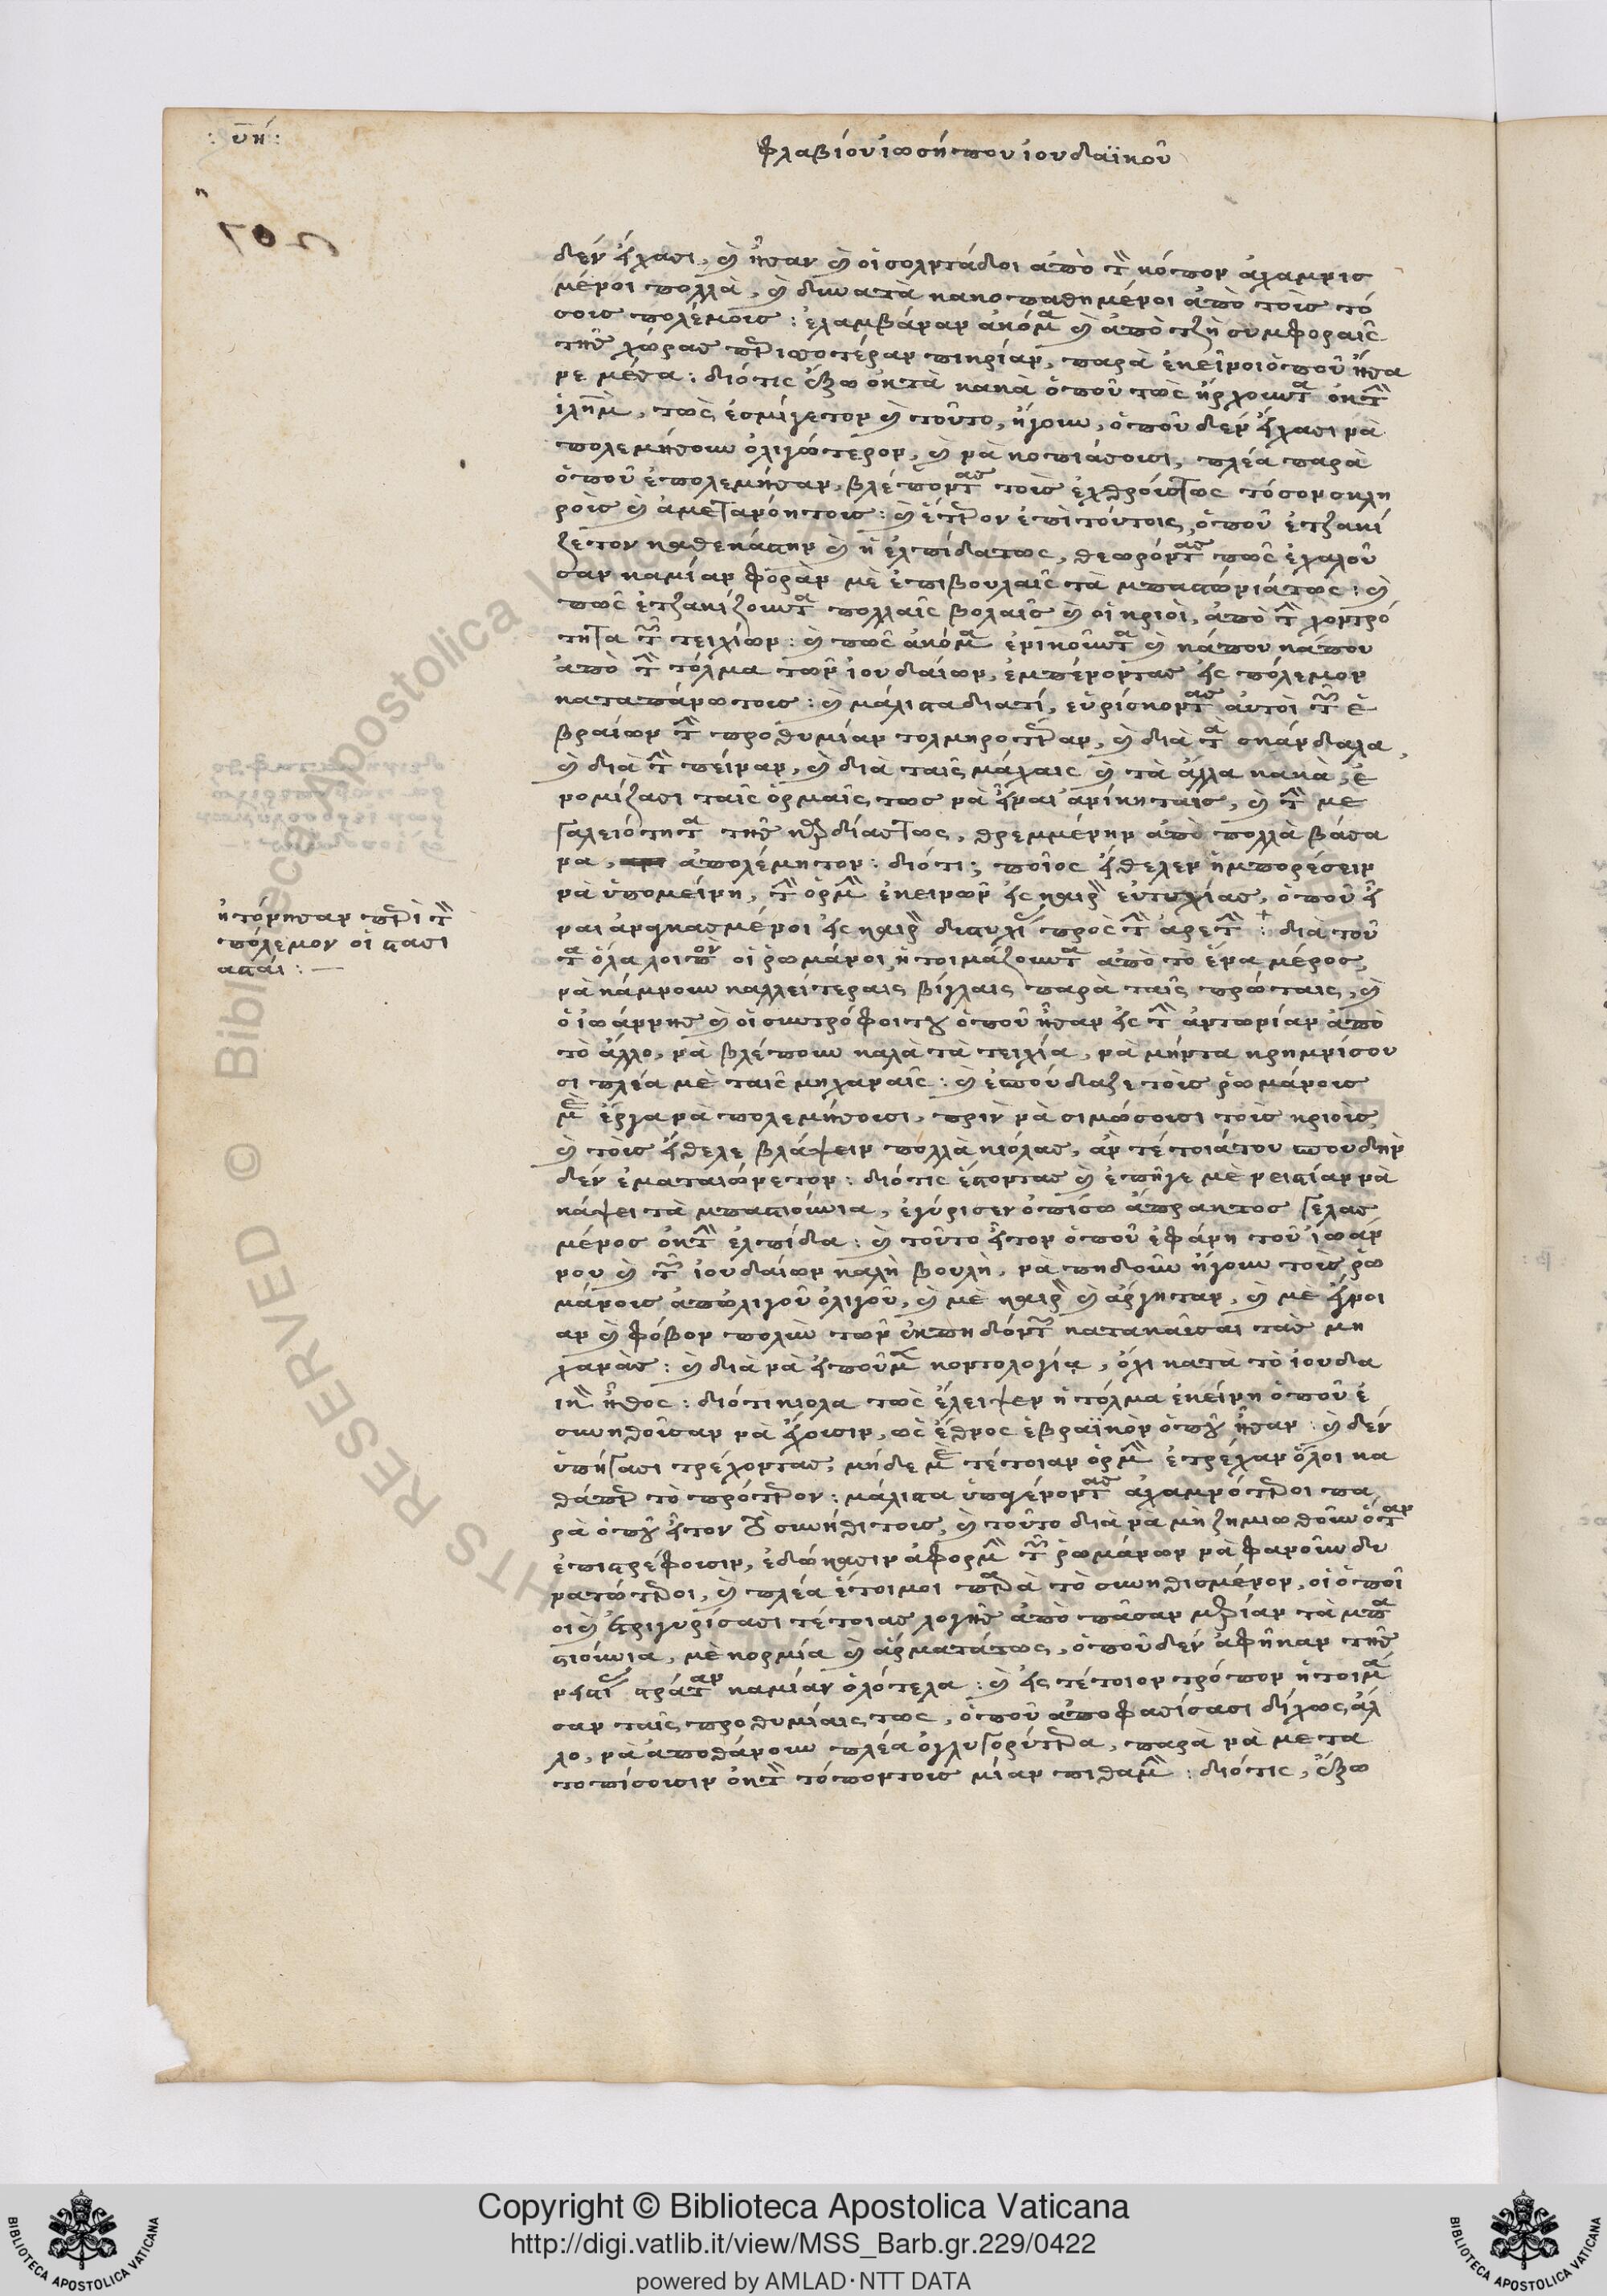 : υη :
φλαβίου ἰωσήπου ἰουδαϊκοῦ
δὲν εἴχασι, καὶ ἦσαν καὶ οἱ σολντάδοι ἀπὸ τὸν κόπον ἀχαμνισ
μένοι πολλὰ, καὶ δυνατὰ κακοπαθημένοι ἀπὸ τοὶς τό
σοις πολέμοις: ἐλαμβάναν ἀκόμα καὶ ἀπὸ τζὴ συμφοραῖς
τῆς χώρας περισσοτέραν πικρίαν, παρὰ ἐκεῖνοι ὁποῦ ἦσα
νε μέσα: διότις ἔξω ἐκ τὰ κακὰ ὁποῦ τῶς ἤρχουντα ἐκ τὴν
ἱλημ, τῶς ἐσμίγετον καὶ τοῦτο, ἤγουν, ὁποῦ δὲν εἴχασι νὰ
πολεμήσουν ὀλιγώτερον, καὶ νὰ κοπιάσουσι, πλέα παρὰ
ὁποῦ ἐπολεμῆσαν, βλέποντας τοὶς ἐχθρούς τως τόσον σκλη
ροὶς καὶ ἀμετανόητοις: καὶ ἕτερον ἐπὶ τούτοις, ὁποῦ ἐτζακί
ζετον καθεκάστην καὶ ἡ ἐλπίδα τως, θεωρόντας πῶς ἐχαλοῦ
σαν καμίαν φορὰν μὲ ἐπιβουλαῖς τὰ μπαστιώνιά τως: καὶ
πῶς ἐτζακίζουντα πολλαῖς βολαῖς καὶ οἱ κριοὶ, ἀπὸ τὴν χοντρό
τητα τῶν τειχίων: καὶ πῶς ἀκόμα ἐνικοῦντα καὶ κάπου κάπου
ἀπὸ τὴν τόλμα τῶν ἰουδαίων, ἐμπένοντας εἰς πόλεμον
καταπάνω τοις: καὶ μάλιστα διατί, εὑρίσκοντας αὐτοὶ τῶν ἑ
βραίων τὴν προθυμίαν τολμηροτέραν, καὶ διὰ τὰ σκάνδαλα,
καὶ διὰ τὴν πείναν, καὶ διὰ ταῖς μάχαις καὶ τὰ ἄλλα κακὰ, ἐ
νομίζασι ταῖς ὁρμαῖς τως νὰ εἶναι ἀνίκηταις, καὶ τὴν με
γαλειότητα τῆς καρδίας τως, θρεμμένην ἀπὸ πολλὰ βάσα
να, ἀπολέμητον: διότι; ποῖος ἤθελεν ἠμπορέσειν
νὰ ὑπομείνη, τὴν ὁρμὴν ἐκεινῶν εἰς καιρὸν εὐτυχίας, ὁποῦ εἶ
ναι ἀναγκασμένοι εἰς καιρὸν δυστυχίας πρὸς τὴν ἀρετὴν: διὰ τοῦ
τα ὅλα λοιπὸν οἱ ῥωμάνοι ἡτοιμάζουντα ἀπὸ τὸ ἕνα μέρος,
νὰ κάμνουν καλλείτεραις βίγλαις παρὰ ταῖς πρώταις, καὶ
ὁ ἰωάννης καὶ οἱ συντρόφοι του ὁποῦ ἦσαν εἰς τὴν ἀντωνίαν ἀπὸ
τὸ ἄλλο, νὰ βλέπουν καλὰ τὰ τειχία, νὰ μήντα κρημνίσου
σι πλέα μὲ ταῖς μηχαναῖς: καὶ ἐσπούδαζε τοὶς ῥωμάνοις
μὲ ἔργα νὰ πολεμήσουσι, πρὶν νὰ σιμώσουσι τοὶς κριοὶς,
καὶ τοὶς ἤθελε βλάψειν πολλὰ κιόλας, ἂν τέτοιά του σπουδὴν
δὲν ἐματαιώνετον: διότις ἔστοντας καὶ ἐπῆγε μὲ νειστίαν νὰ
κάψει τὰ μπαστιόνια, ἐγύρισεν ὀπίσω ἄπρακτος γελασ
μένος ἐκ τὴν ἐλπίδα: καὶ τοῦτο ἦτον ὁποῦ ἐφάνη τοῦ ἰωάν
νου καὶ τῶν ἰουδαίων καλὴ βουλὴ, νὰ πηδοῦν ἤγουν τοὶς ῥω
μάνοις ἀπ᾽ ὀλιγοῦ ὀλιγοῦ, καὶ μὲ καιρὸν καὶ ἀργηταν, καὶ μὲ ἔννοι
αν καὶ φόβον πολὺν τῶν ἐκπηδόντων κατακαῦσαι τὰς μη
χανάς: καὶ διὰ νὰ εἰποῦμεν κοντολογία, ὄχι κατὰ τὸ ἰουδα
ικὸν ἦθος: διότι κιολα τῶς ἔλειψεν ἡ τόλμα ἐκείνη ὁποῦ ἐ
συνηθοῦσαν νὰ ἔχουσιν, ὡς ἔθνος ἑβραϊκὸν ὁποῦ ἦσαν: καὶ δὲν
ὑπήγασι τρέχοντας, μήδε μὲ τέτοιαν ὁρμὴν ἐτρέχαν ὅλοι κα
θάπερ τὸ πρότερον: μάλιστα ὑπαγένοντας ἀχαμνότεροι πα
ρὰ ὁποῦ ἦτον τὸ συνήθι τοις, καὶ τοῦτο διὰ νὰ μὴ ζημιωθοῦν ὅταν
ἐπιστρέφουσιν, ἐδώκασιν ἀφορμὴν τῶν ῥωμάνων νὰ φανοῦν δυ
νατώτεροι, καὶ πλέα ἕτοιμοι παρὰ τὸ συνηθισμένον, οἱ ὁποῖ
οι καὶ ἐτριγυρίσασι τέτοιας λογῆς ἀπὸ πᾶσαν μερίαν τὰ μπα
στιόνια, μὲ κορμία καὶ ἄρματά τως, ὁποῦ δὲν ἀφῆκαν τῆς
νειστίας στράταν καμίαν ὁλότελα: καὶ εἰς τέτοιον τρόπον ἡτοιμά
σαν ταῖς προθυμίαις τως, ὁποῦ ἀποφασίσασι δίχως ἄλ
λο, νὰ ἀποθάνουν πλέα ὀγλυγορύτερα, παρὰ νὰ μετα
τοπίσουσιν ἐκ τὸν τόπον τοις μίαν πιθαμὴν: διότις, ἔξω
ἠτόνησαν περὶ τὸν
πόλεμον οἱ στασι
ασταί: —
Copyright © Biblioteca Apostolica Vaticana
http://digi.vatlib.it/view/MSS_Barb.gr.229/0422
powered by AMLAD·NTT DATA